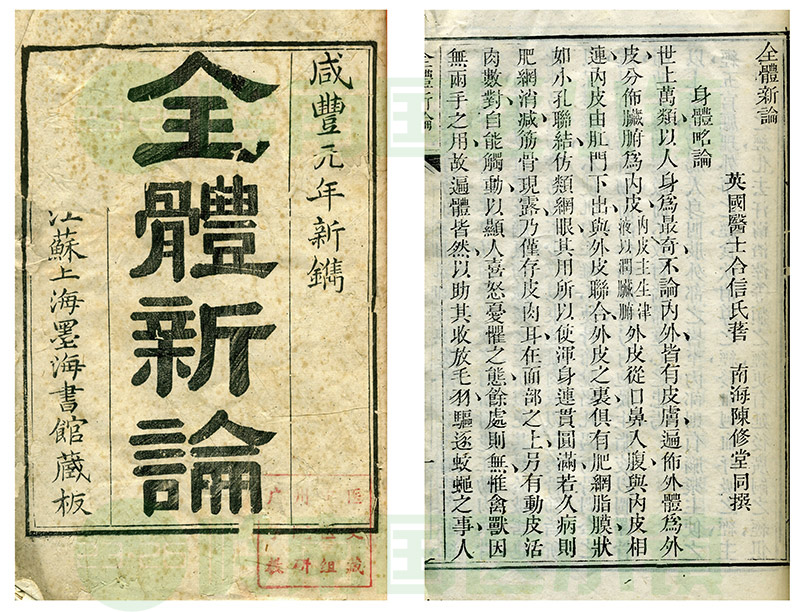 咸豐元年新鐫
全體新論
江蘇上海墨海書館藏板
全體新論
身體略論
英國醫士合信氏著 南海陳修堂同撰
世上萬類以人身爲最奇不論內外皆有皮膚遍佈外體爲外
皮分佈臟腑爲內皮內皮主生津液以潤臟腑外皮從口鼻入腹與內皮相
連內皮由肛門下出與外皮聯合外皮之裏俱有肥網脂膜狀
如小孔聯結仿類網眼其用所以使渾身連貫圓滿若久病則
肥網消減筋骨現露乃僅存皮肉耳在面部之上另有動皮活
肉數對自能觸動以顯人喜怒憂懼之態餘處則無惟禽獸因
無兩手之用故遍體皆然以助其收放毛羽驅逐蚊蠅之事人
全體新論
一